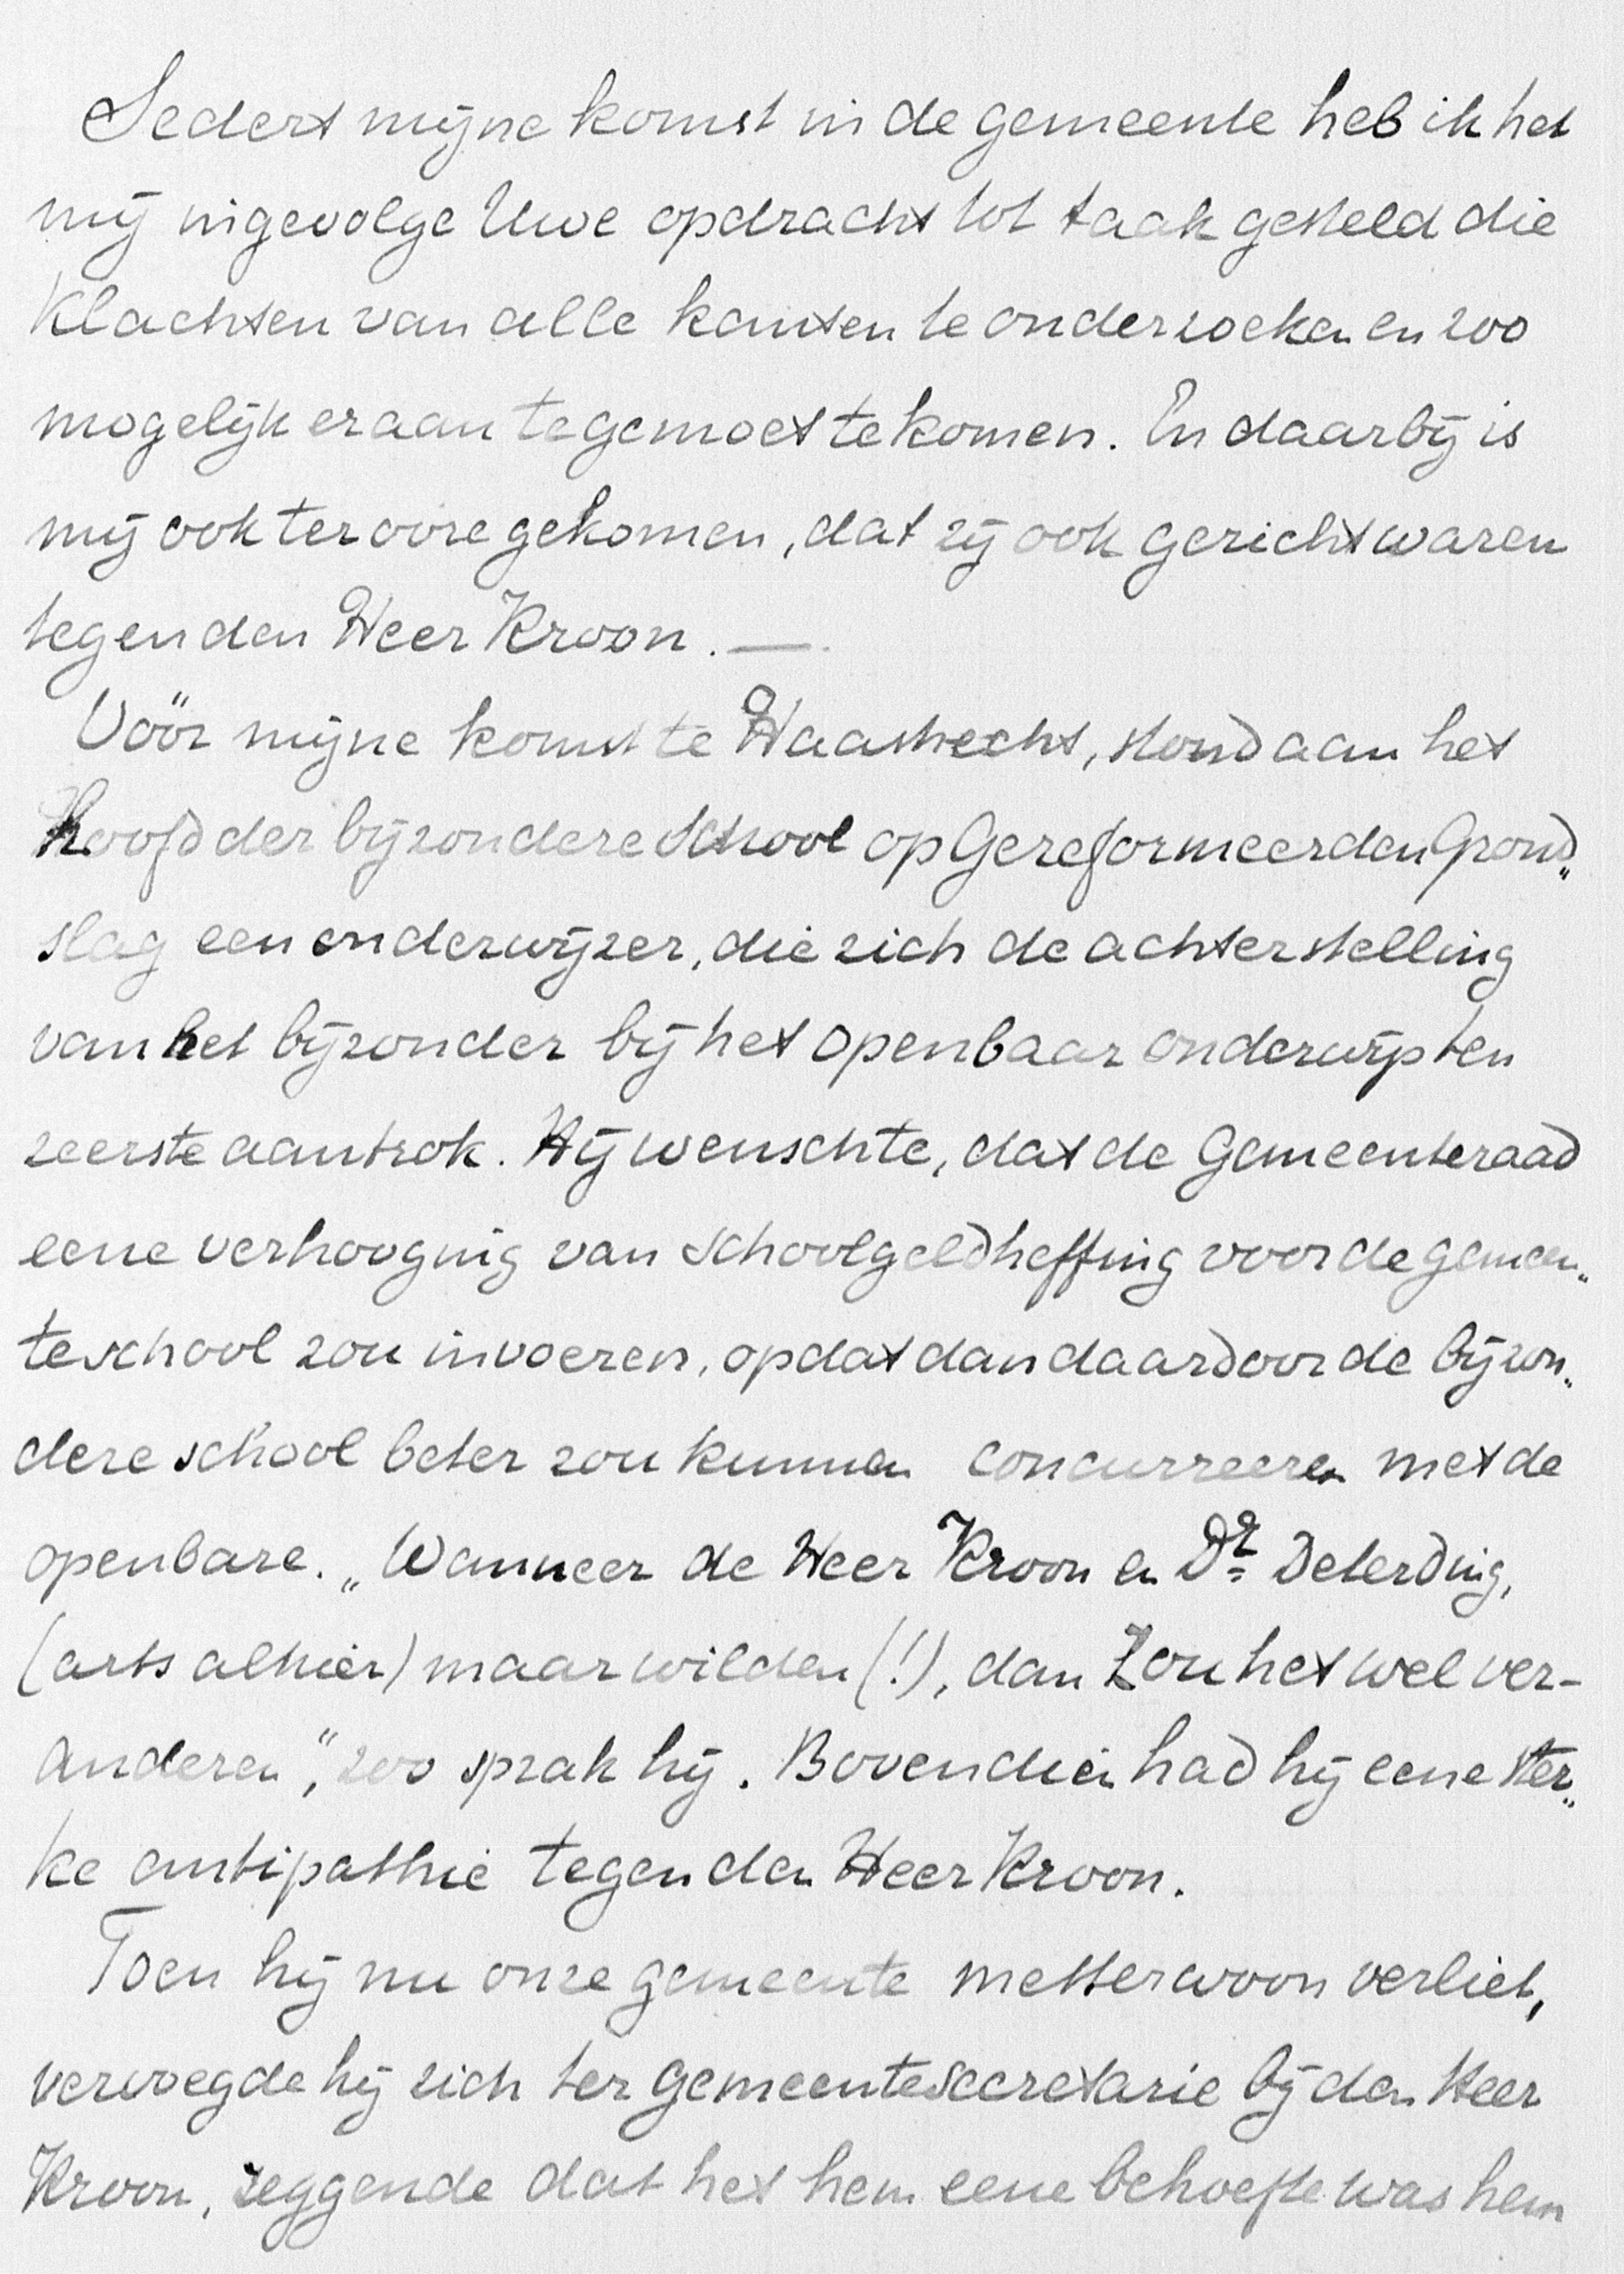 Sedert mijne komst in de gemeente heb ik het
mij ingevolge Uwe opdracht tot taak gesteld die
klachten van alle kanten te onderzoeken en zoo
mogelijk eraan tegemoet te komen. En daarbij is
mij ook ter oore gekomen, dat zij ook gericht waren
tegen den Heer Kroon. —.
Vóór mijne komst te Haastrecht, stond aan het
hoofd der bijzondere school op Gereformeerden Grond„
slag een onderwijzer, die zich de achterstelling
van het bijzonder bij het openbaar onderwijs ten
zeerste aantrok. Hij wenschte, dat de Gemeenteraad
eene verhooging van schoolgeldheffing voor de gemeen„
te school zou invoeren, opdat dan daardoor de bijzon„
dere school beter zou kunnen concurreeren met de
openbare. „Wanneer de Heer Kroon en Dr. Deterding,
(arts alhier) maar wilden (!), dan zou het wel ver-
anderen", zoo sprak hij. Bovendien had hij eene ster„
ke antipathie tegen den Heer Kroon.
Toen hij nu onze gemeente metterwoon verliet,
vervoegde hij zich ter gemeentesecretarie bij den Heer
Kroon, zeggende dat het hem eene behoefte was hem